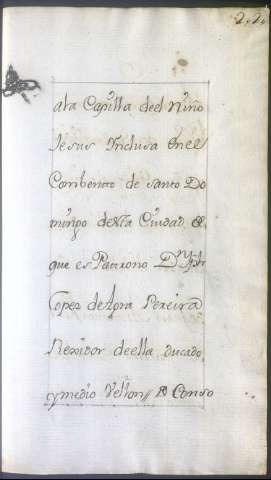 22.
ala Capilla deel Niño
Jesus Inclusa en el
Combento de santo Do
mingo de esta Ciudad
que es Patrono Dn
Lopez de Pereira
Rexidor deella ducado
y medio Vellon de Conso